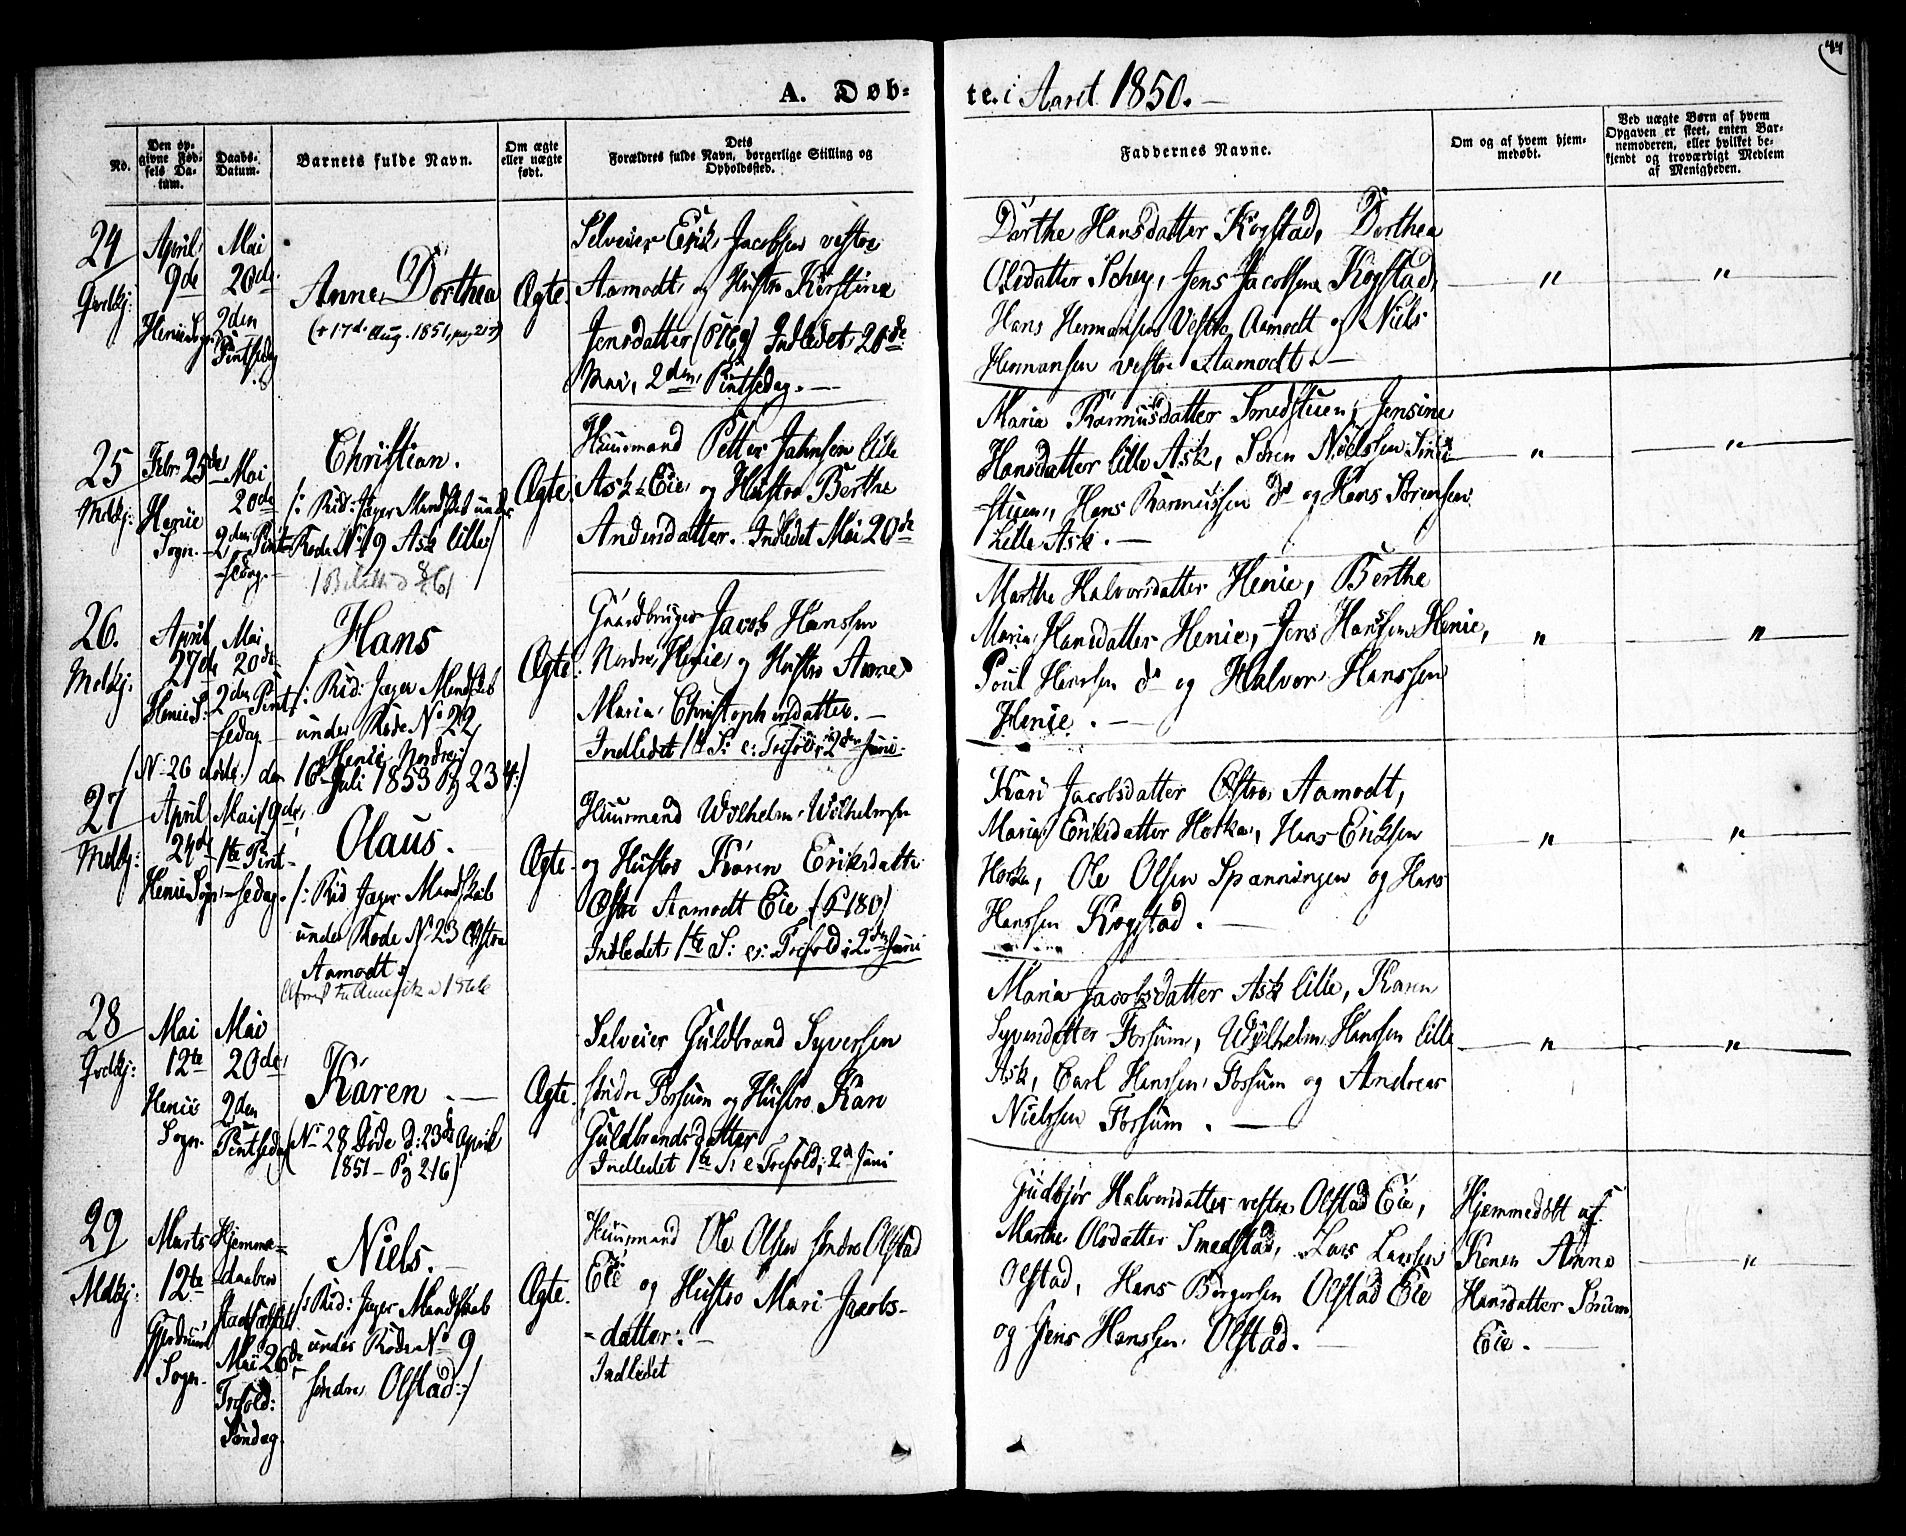 44
A. Døb-
te. i Aaret 1850.
No.
Den op-
givne Fød-
sels Da-
tum.
Daabs-
Datum.
Barnets fulde Navn.
Om ægte
eller uægte
født.
Dets
Forældres fulde Navn, borgerlige Stilling og
Opholdssted.
Faddernes Navne.
Om og af hvem hjem-
medøbt.
Ved uægte Børn af hvem
Opgaven er skeet, enten Bar-
nemoderen, eller hvilket be-
kjendt og troværdigt Medlem
af Menigheden.
24
April
9de
Henie Sogn
Mai
20de
2den
Pintsedag
Anne Dorthea
(+ 17de Aug. 1851, pag 217)
Ægte.
Selveier Erik Jacobsen vestre
Aamodt og Hustro Kirstine
Jensdatter Indledet 20de
Mai, 2den Pintsedag.
Dorthe Hansdatter Kogstad, Dorthea
Olsdatter Schey, Jens Jacobsen Kogstad,
Hans Hermansen Vestre Aamodt og Niels
Hermansen vestre Aamodt.
"
"
25
Mdkj:
Febr: 25de
Henie
Sogn.
Mai
20de
2den Pint-
sedag.
Christian.
/: Rid: Jæger Mandskab under
Rode No 19 Ask lille /
Ægte
Huusmand Petter Jahnsen lille
Ask Eie og Hustro Berthe
Andersdatter. Indledet Mai 20de
Maria Rasmusdatter Smedstuen, Jensine
Hansdatter lille Ask, Søren Nielssen Smed-
stuen, Hans Rasmussen do og Hans Sørensen
Lille Ask.
"
"
26.
Mdkj:
April
27de
Henie S:
Mai
20de
2den Pint-
sedag
Hans
/: Rid: Jæger Mandskab
under Rode No 22
Henie Nordre /
(No 26 døde den 16de Juli 1853 Pg 234:)
Ægte.
Gaardbruger Jacob Hanssen
Nordre Henie og Hustro Anne
Maria Christophersdatter.
Indledet 1te S: e: Trefold: 2den Juni.
Marthe Halvorsdatter Henie, Berthe
Maria Hansdatter Henie, Jens Hanssen Henie,
Poul Hanssen do og Halvor Hanssen
Henie.
"
"
27
Mdkj:
April
24de
Henie Sogn
Mai 19de
1te Pint-
sedag.
Olaus.
/: Rid Jæger Mandskab
under Rode No 23 Østre
Aamodt /
til Amerika 1866
Ægte.
Huusmand Wilhelm Wilhelmsen
og Hustro Karen Eriksdatter
Østre Aamodt Eie (P 180)
Indledet 1te S: e: Trefold: 2den Juni
Kari Jacobsdatter Østre Aamodt,
Maria Eriksdatter Holka, Hans Eriksen
Holka, Ole Olsen Spænningen og Hans
Hanssen Kogstad.
"
"
28
Mai
12te
Henie
Sogn.
Mai
20de
2den
Pintsedag
Karen.
(No 28 døde d: 23de April
1851 - Pg 216)
Ægte.
Selveier Guldbrand Syversen
søndre Forsum og Hustro Kari
Guldbrandsdatter
Indledet 1te S: e Trefold: 2d Juni
Maria Jacobsdatter Ask lille, Karen
Syversdatter Forsum, Wilhelm Hanssen lille
Ask, Carl Hanssen Forsum og Andreas
Nielssen Forsum.
"
"
29
Mdkj:
Marts
12te
Gjerdrum
Sogn.
Hjemme-
daaben
stadfæstet
Mai 26de
Trefold:
Søndag.
Niels.
/: Rid: Jæger Mandskab
under Rode No 9
søndre Olstad :/
Ægte.
Huusmand Ole Olsen søndre Olstad
Eie og Hustro Mari Jacobs-
datter.
Indledet
Gudbjør Halvorsdatter vestre Olstad Eie,
Marthe Olsdatter Smedstad, Lars Larssen
Olstad, Hans Børgersen Olstad Eie
og Jens Hanssen Olstad.
Hjemmedøbt af
Konen Anne
Hansdatter Sørum
Eie.
"